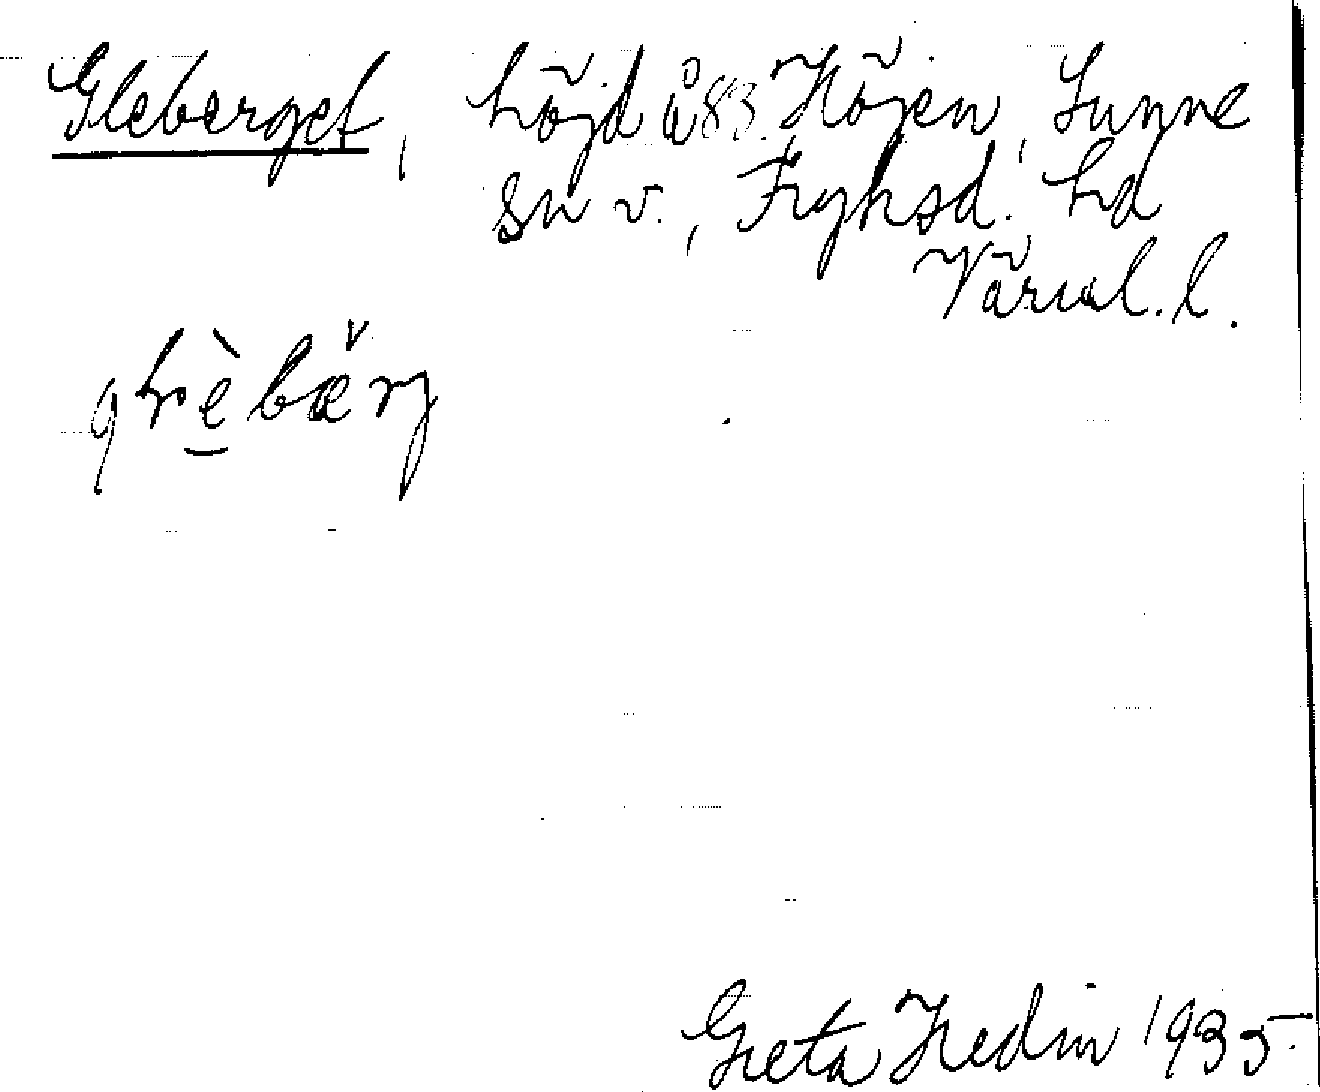 Gleberget, höjd å 83. Höjen, Sunne
sn v., Fryksd. hd
Värml. l.
Greta Hedin 1935.